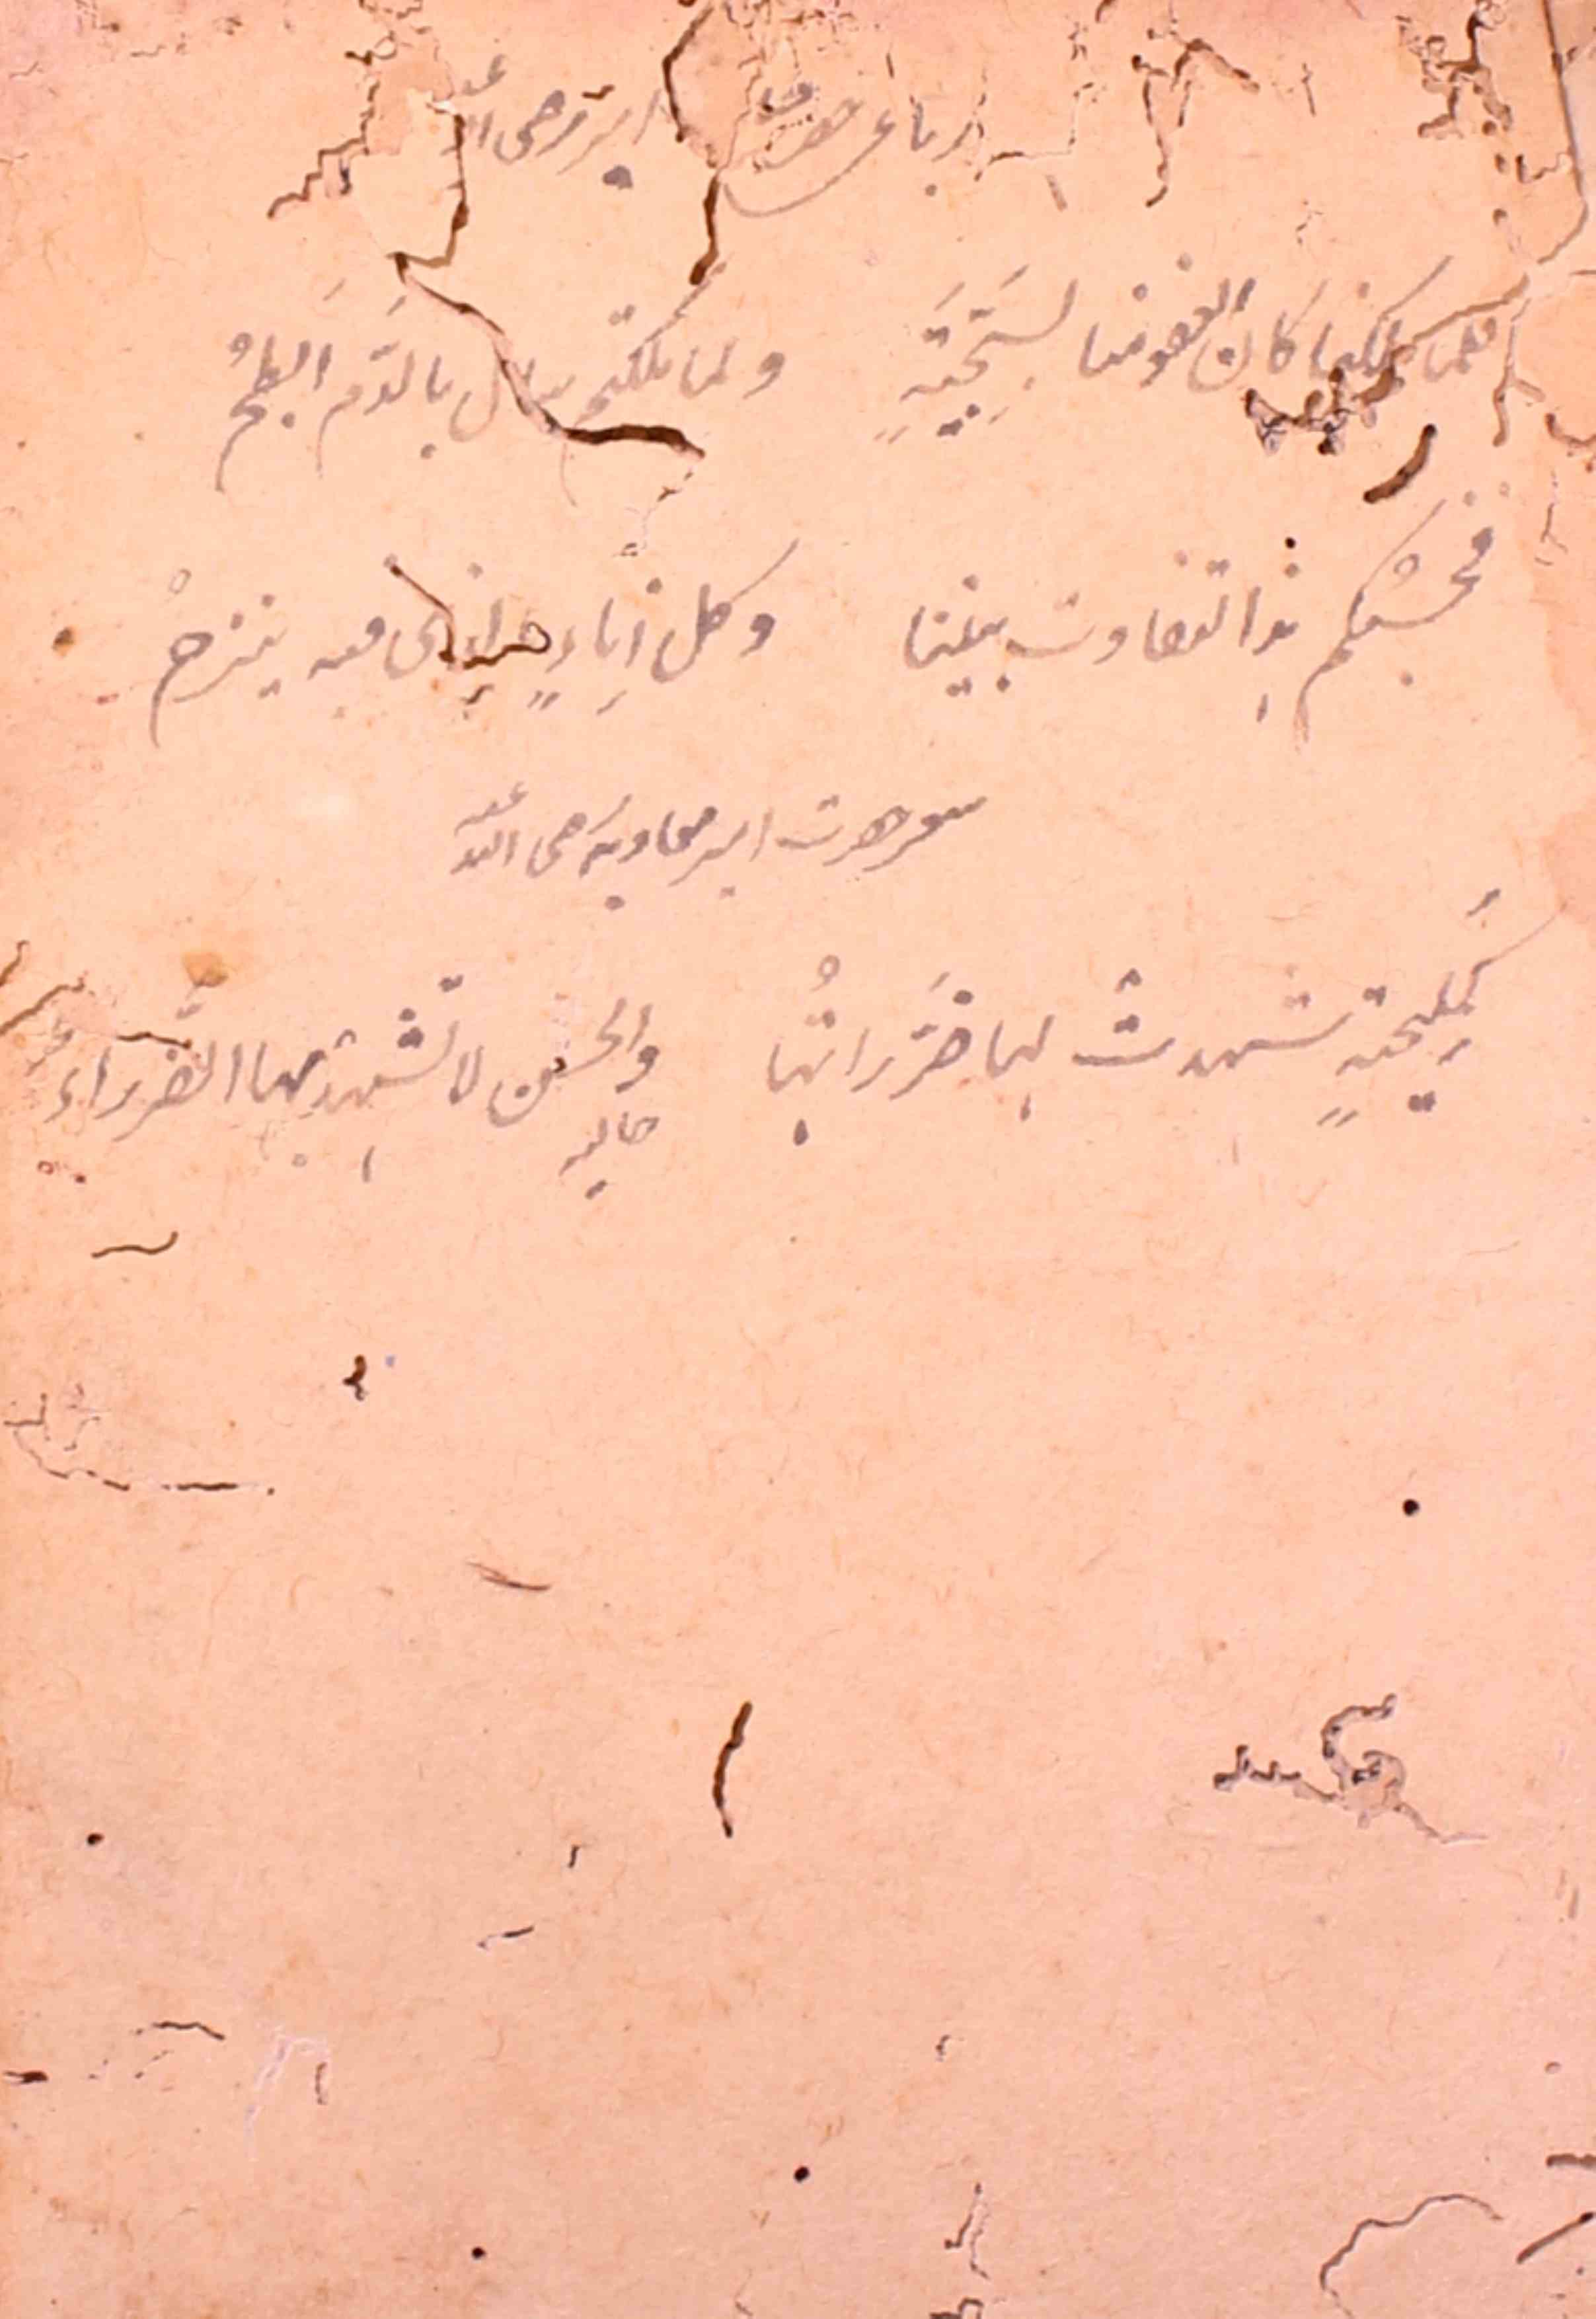 رباعی حضرت امیر رضی الله عنه
ملکنا کان العفو منا لسَجِیَّةٍ ولما ملکتم سال بالدَّمِ ابطحُ
فحسبُکم ہذا التفاوت بیننا وکل اِناءٍ بالذی فیه ینضحُ
شعر حضرت امیر معاویه رضی الله عنه
کَمَلِیحَةٍ شہدتْ لہا ضَرَّاتُہا والحسن لا تشہد بہا الضَّراءُ